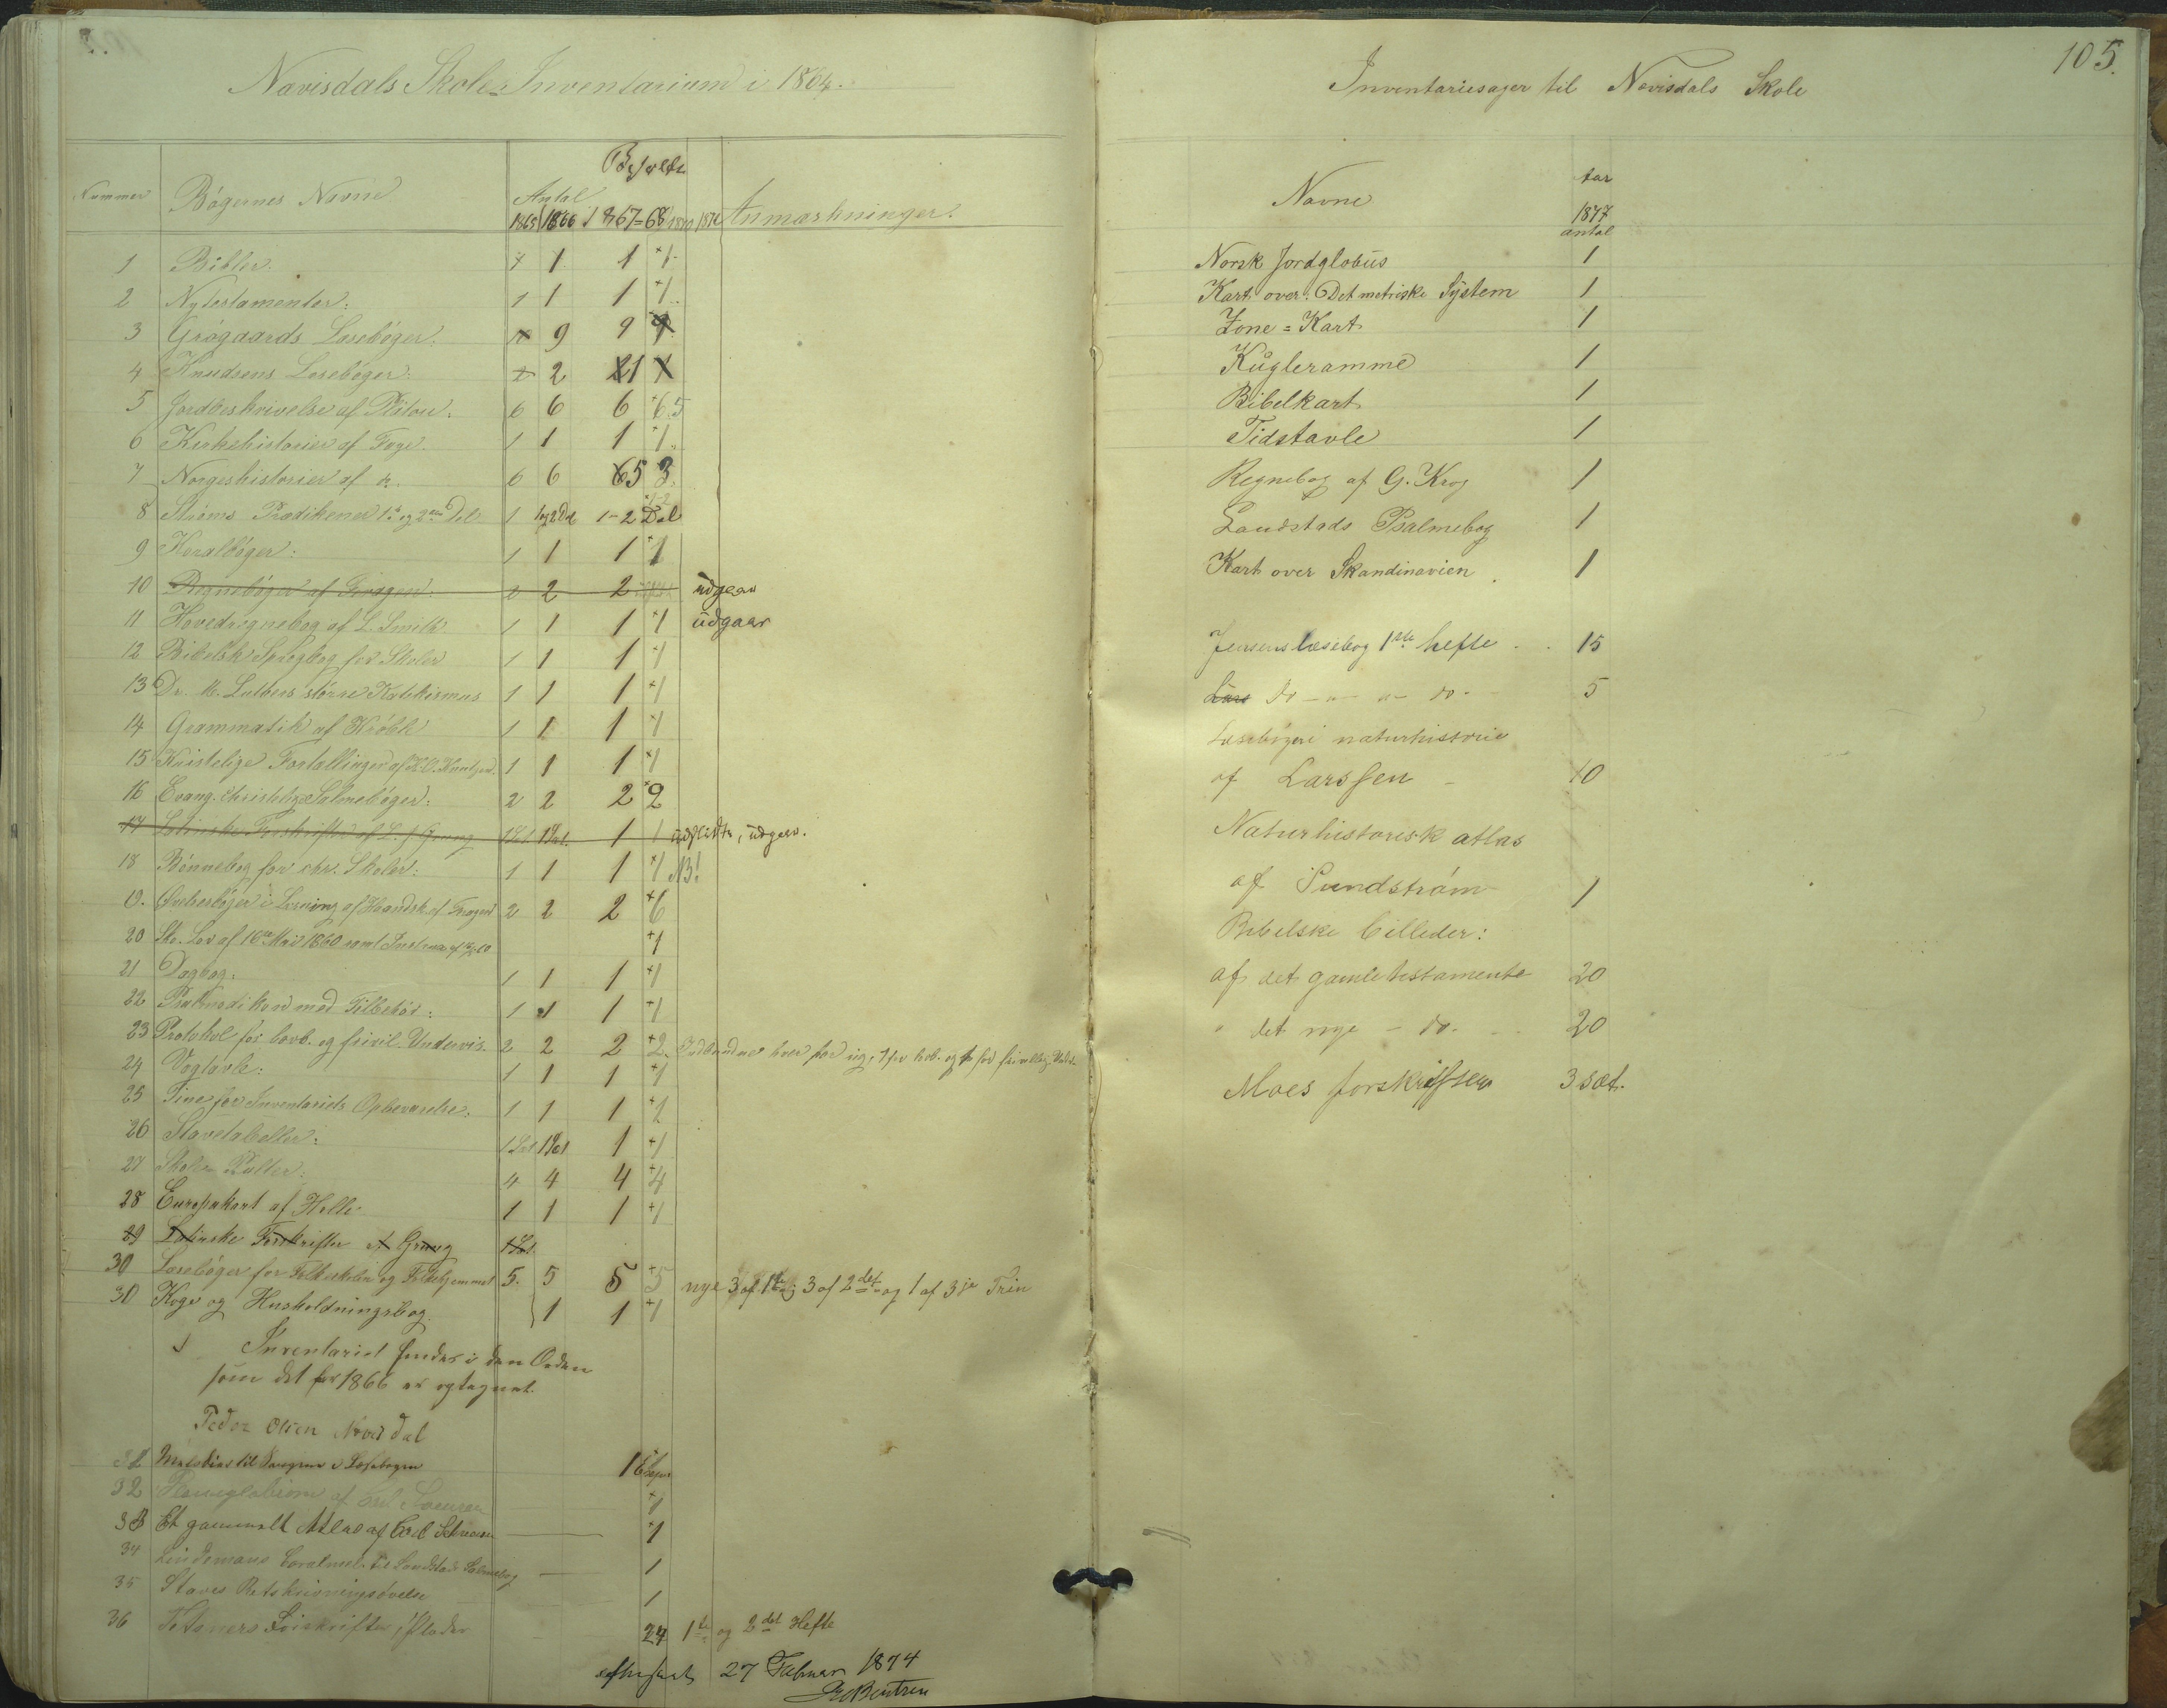 Navisdals Skoles Inventarium i 1864.
Nummer Bøgernes Navne Antal Anmærkninger.
1865 1866 1867-68 1870 1872
1 Bibler. 1 1 1
2 Nytestamenter: 1 1 1 1
3 Grøgaards Læsebøger: 9 9
4 Knudsens Læsebøger: 2 2 21
5 Jordbeskrivelse af Platou. 6 6 6 6 5
6 Kirkehistorier af Foge. 1 1 1 1
7 Norgeshistorier af d. 6 6 65 3
8 Strøms Prædikener 1ste og 2den Del 1 1 og 2 Del 1-2 Del
9 Koralbøger: 1 1 1 1
10 Regnebøger af 2 2 2 udgaar
11 Hovedregnebog af L. Smith 1 1 1 1 udgaar
12 Bibelsk Sprogbog for Skoler 1 1 1 1
13 Dr. M. Luthers større Katekismus 1 1 1 1
14 Grammatik af 1 1 1 1
15 Kristelige Fortællinger af 1 1 1 1
16 Evang. Christelige Salmebøger: 2 2 2 2
17 Latinske Forskrifter af L. J. Grung 1 Sæt 1 Sæt. 1 1 udslidte, udgaar.
18 Bønnebog for chr. Skoler: 1 1 1 1 NB!
19. Øvelsesbøger i Læsning af Haandsk. af 2 2 2 6
20 Sko. Lov af 16de Mai 1860 samt 1
21 Dagbog: 1 1 1 1
22 Psalmodikon med Tilbehør: 1 1 1 1
23 Protokol for lovb. og frivil. Undervis. 2 2 2 2. hver for sig, 1 for lovb. og 1 for frivillig
24 Vegtavle: 1 1 1 1
25 Tine for Inventariets Opbevarelse: 1 1 1 1
26 Stavetabeller: 1 Sæt 1 Sæt 1 1
27 Skole-Pulter: 4 4 4 4
28 Europakart af Helle 1 1 1 1
29 Latinske Forskrifter af Grung 1 Sæt
30 Læsebøger for Folkeskolen og Folkehjemmet 5. 5 5 5 nye 3 af 1ste; 3 af 2det og 1 af 3je Trin
30 Koge og Husholdningsbog. 1 1 1
Inventariet findes i den Orden
som det for 1866 er optegnet.
Peder Olsen Navisdal
Melodier til Sangene i Læsebogen
32 af Carl 1
33 Et gammelt Atlas af Carl 1
34 Lindemans Coralmel. til Landstads Salmebog 1
35 Staves Retskrivningsøvelse 1
36 24 1ste og 2det Hefte
27 Februar 1874
105.
Inventariesager til Navisdals Skole
Navne Aar
1877
antal
Norsk Jordglobus 1
Kart over: Det metriske System 1
Zone=Kart 1
Kugleramme 1
Bibelkart 1
Tidstavle 1
Regnebog af G. Krog 1
Landstads Psalmebog 1
Kart over Skandinavien 1
Jensens læsebog 1ste hefte 15
Lars do - " - " - do - 5
Læsebøger i naturhistorie
af Larssen - 10
Naturhistorisk atlas
af Sundstrøm 1
Bibelske billeder:
af det gamle testamente 20
" det nye - do - 20
Moes forskrifter 3 sæt.